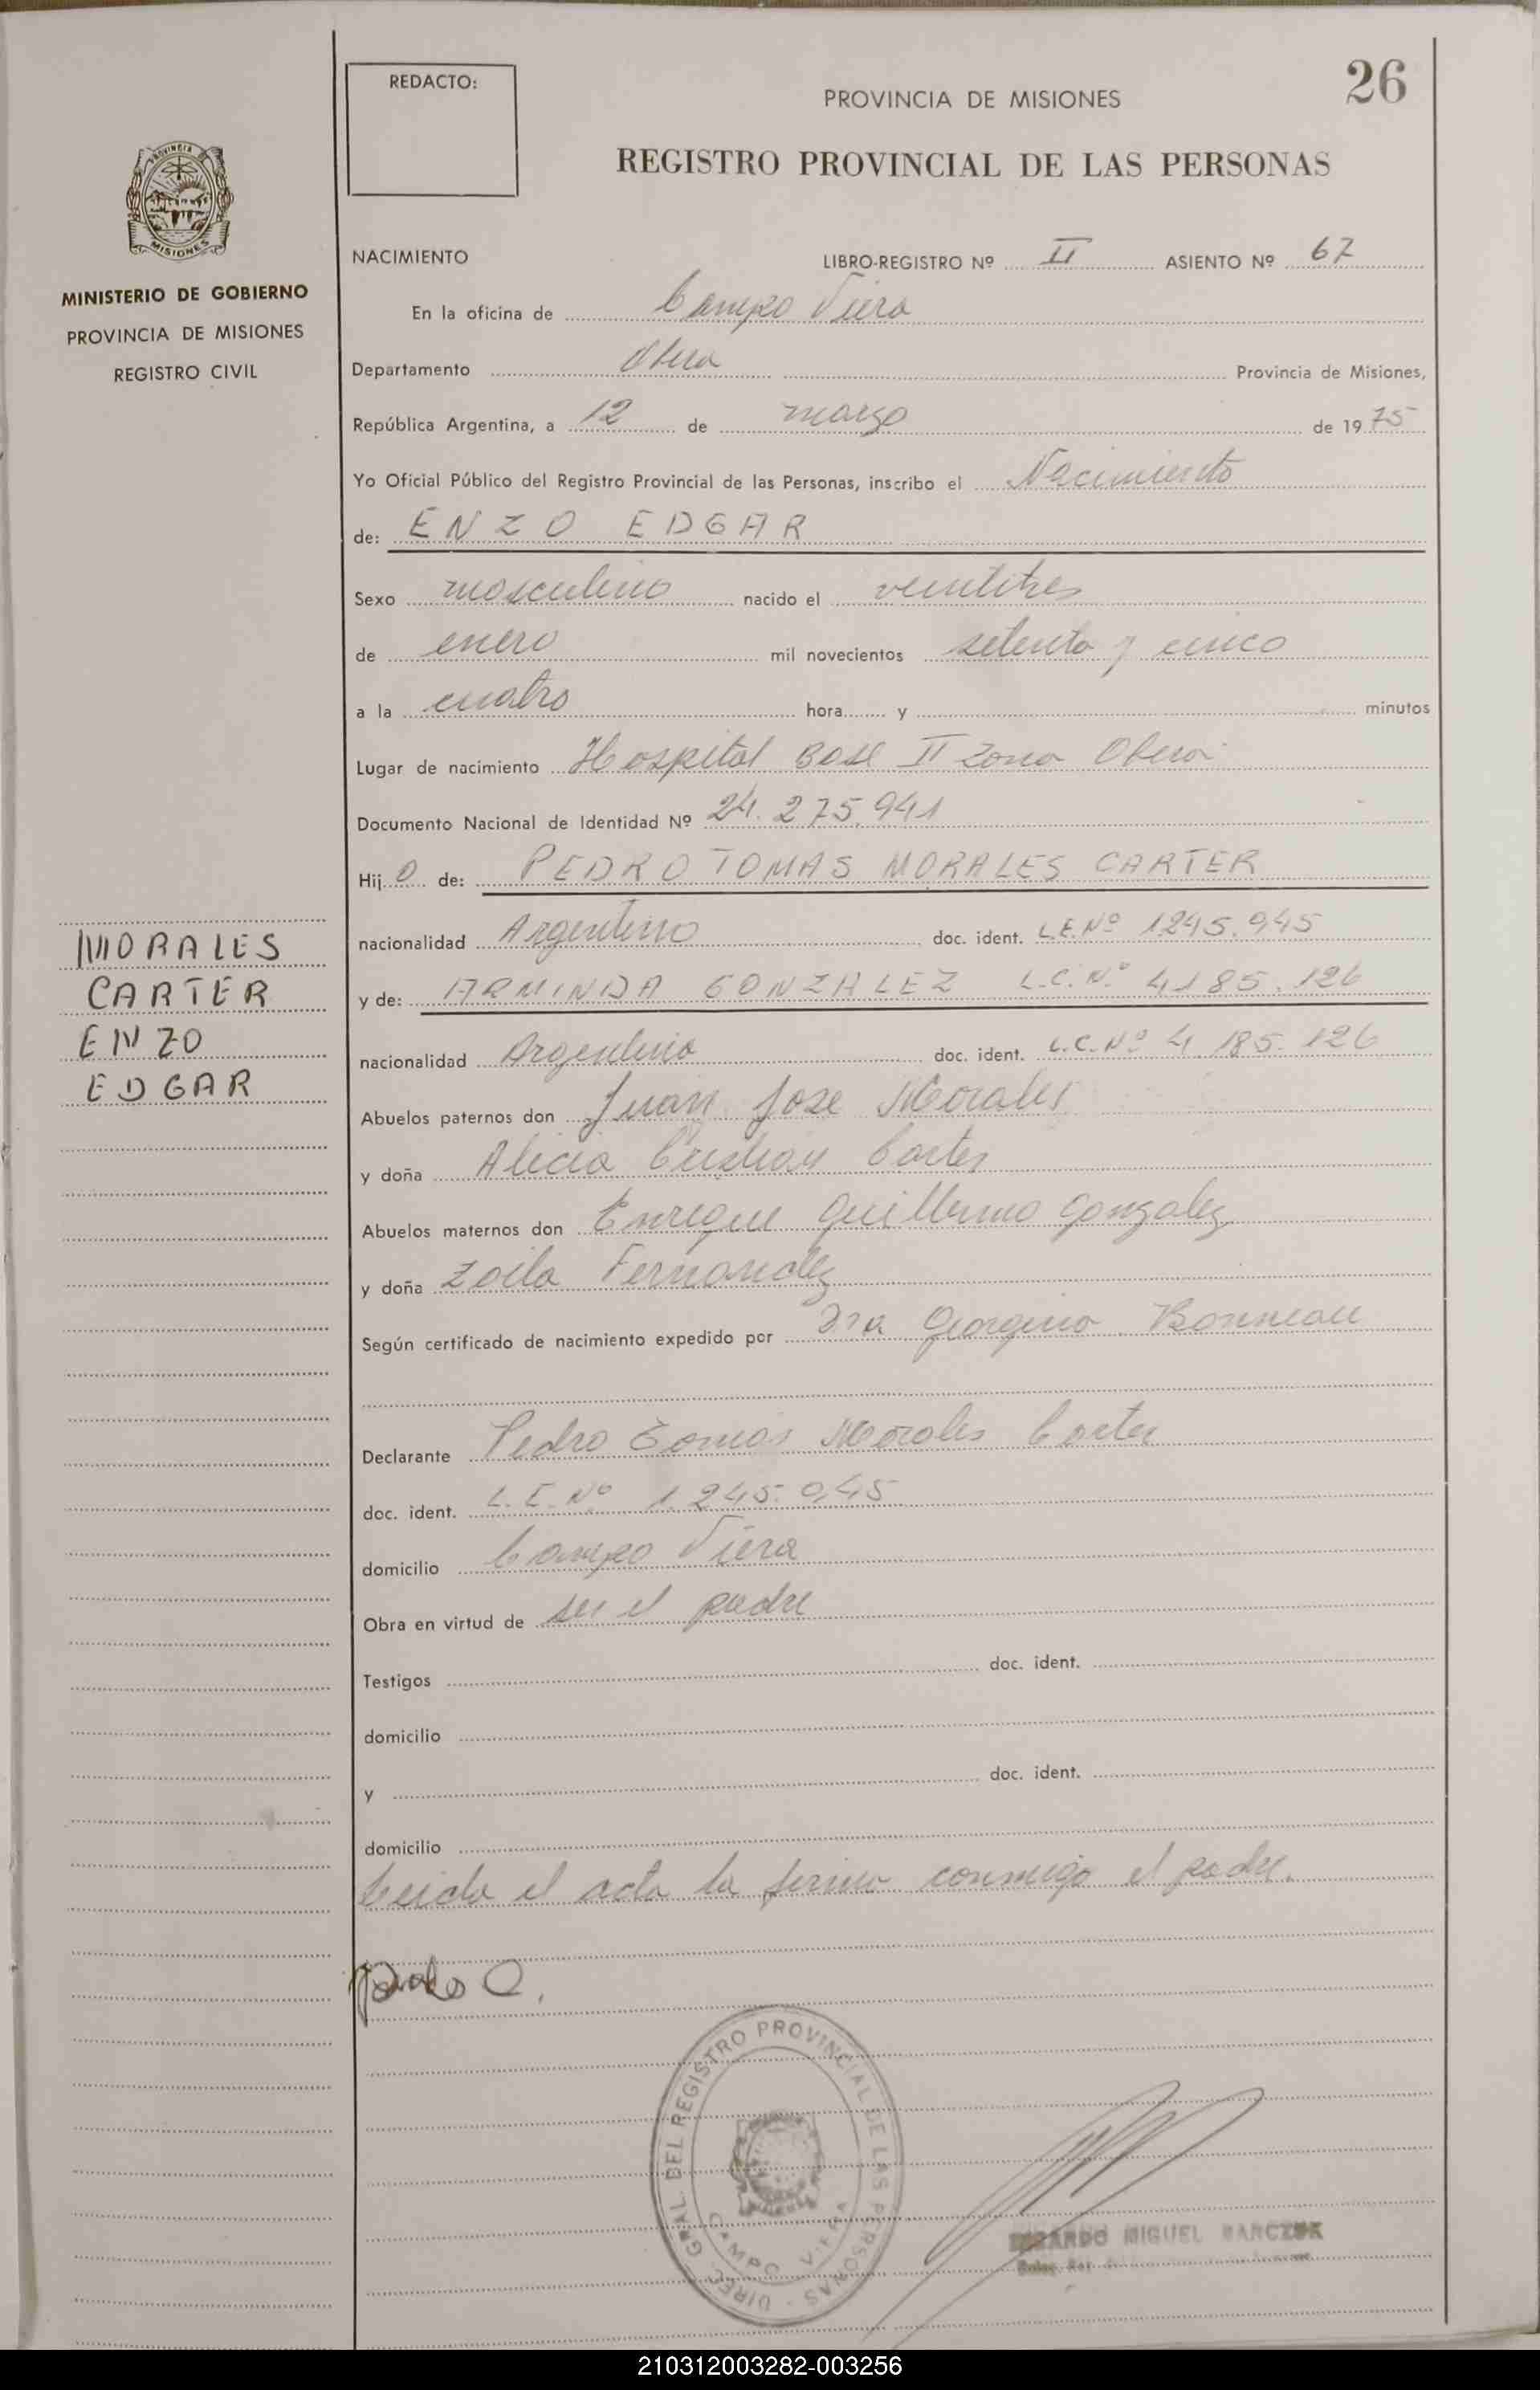 26
REDACTO:
PROVINCIA DE MISIONES
REGISTRO PROVINCIAL DE LAS PERSONAS
PROVINCIA DE
MISIONES
MINISTERIO DE GOBIERNO
PROVINCIA DE MISIONES
REGISTRO CIVIL
NACIMIENTO LIBRO-REGISTRO Nº II ASIENTO Nº 67
En la oficina de Campo Viera
Departamento Obera Provincia de Misiones,
República Argentina, a 12 de marzo de 1975
Yo Oficial Público del Registro Provincial de las Personas, inscribo el Nacimiento
de: ENZO EDGAR
Sexo masculino nacido el veintitres
de enero mil novecientos setenta y cinco
a la cuatro hora y minutos
Lugar de nacimiento Hospital Base II Zona Obera
Documento Nacional de Identidad Nº 24.275.941
Hijo de: PEDRO TOMAS MORALES CARTER
nacionalidad Argentino doc. ident. L.E.Nº 1245.945
y de: ARMINDA GONZALEZ L.C.Nº 4185.126
nacionalidad Argentina doc. ident. L.C.Nº 4.185.126
MORALES
CARTER
ENZO
EDGAR
Abuelos paternos don Juan Jose Morales
y doña Alicia Cristian Carter
Abuelos maternos don Enrique Guillermo Gonzalez
y doña Zoila Fernandez
Según certificado de nacimiento expedido por Dra Georgina Bonneau
Declarante Pedro Tomas Morales Carter
doc. ident. L.E.Nº 1.245.945
domicilio Campo Viera
Obra en virtud de ser el padre
Testigos doc. ident.
domicilio
y doc. ident.
domicilio
Leida el acta la firma conmigo el padre.
Morales C.
DIREC. GRAL. DEL REGISTRO PROVINCIAL DE LAS PERSONAS
CAMPO VIERA
MIGUEL MARCZUK
210312003282-003256